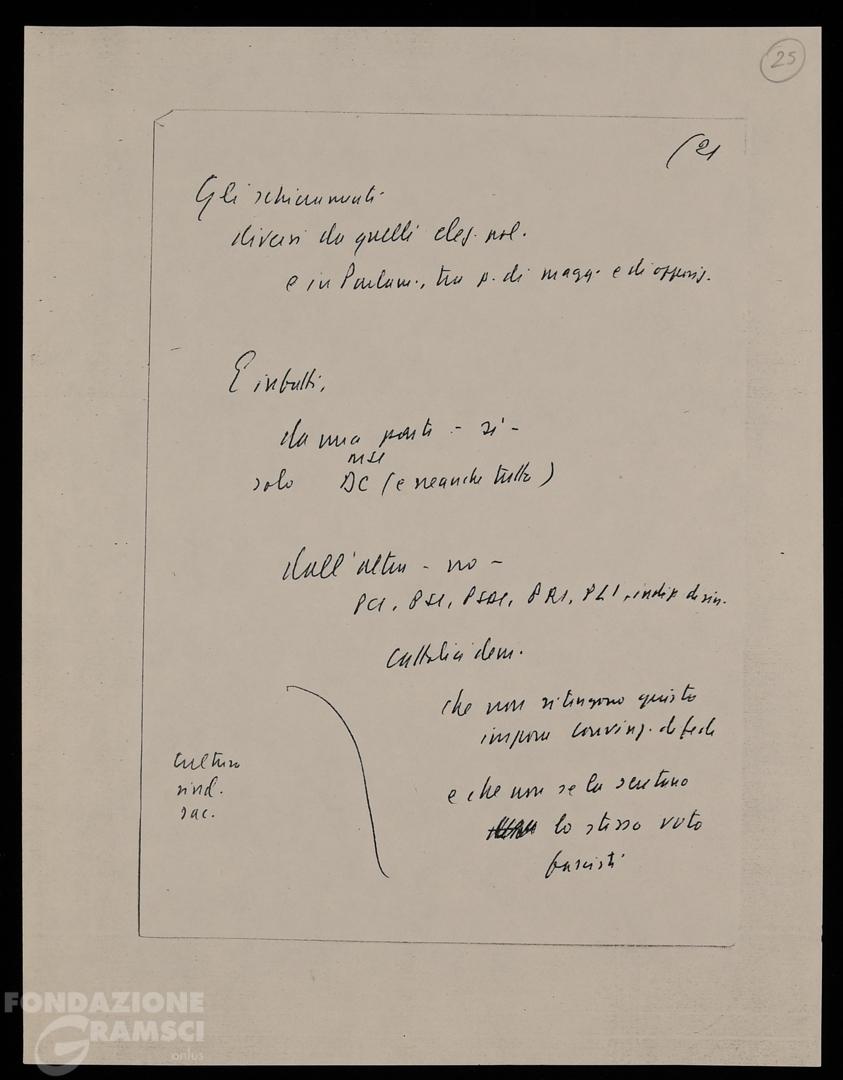 25
(21
Gli schieramenti
diversi da quelli eleg. pol.
e in Parlam., tra p. di magg. e di opposiz.
E infatti,
da una parte - sì -
MSI
solo DC (e neanche tutta)
dall'altra - no -
PCI, PSI, PSDI, PRI, PLI, indip. di sin.
Cattolici dem.
che non ritengono giusto
imporre convinz. di fede
e che non se la sentono
lo stesso voto
fascisti
Cultura
sind.
sac.
FONDAZIONE
GRAMSCI
onlus